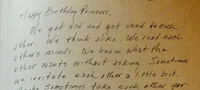 Happy Birthday Princess,
We got old and got used to each
other. We think alike. We read each
others minds. We know what the
other wants without asking. Sometimes
we irritate each other a little bit.
Maybe sometimes take each other for